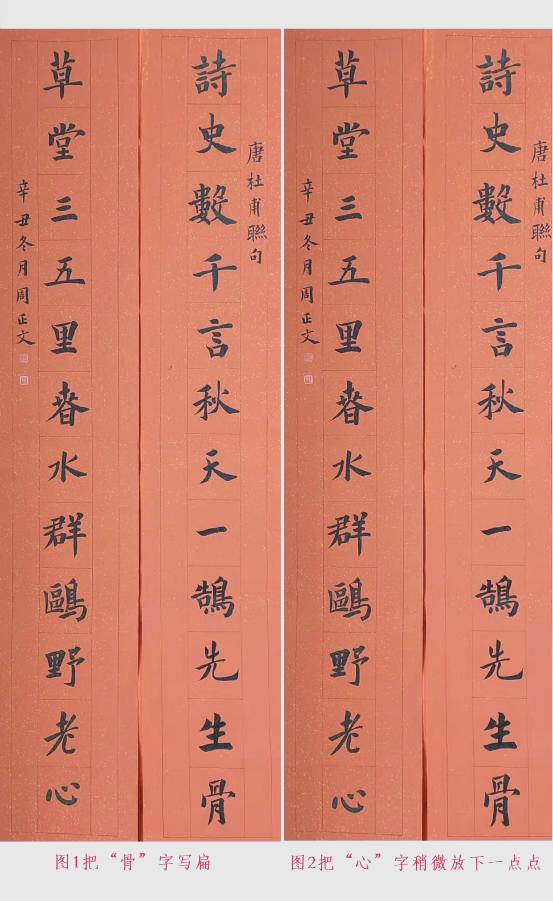 唐杜甫聯句
詩史數千言秋天一鵠先生骨
草堂三五里春水群鷗野老心
辛丑冬月周正文
图1把“骨”字写扁
唐杜甫聯句
詩史數千言秋天一鵠先生骨
草堂三五里春水群鷗野老心
辛丑冬月周正文
图2把“心”字稍微放下一点点